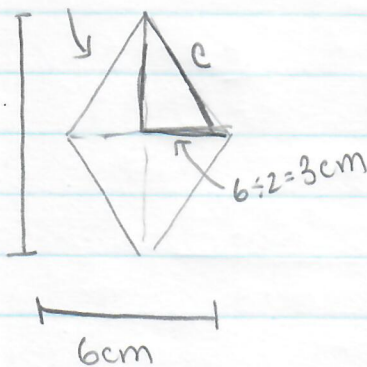 c
6÷2=3cm
6cm